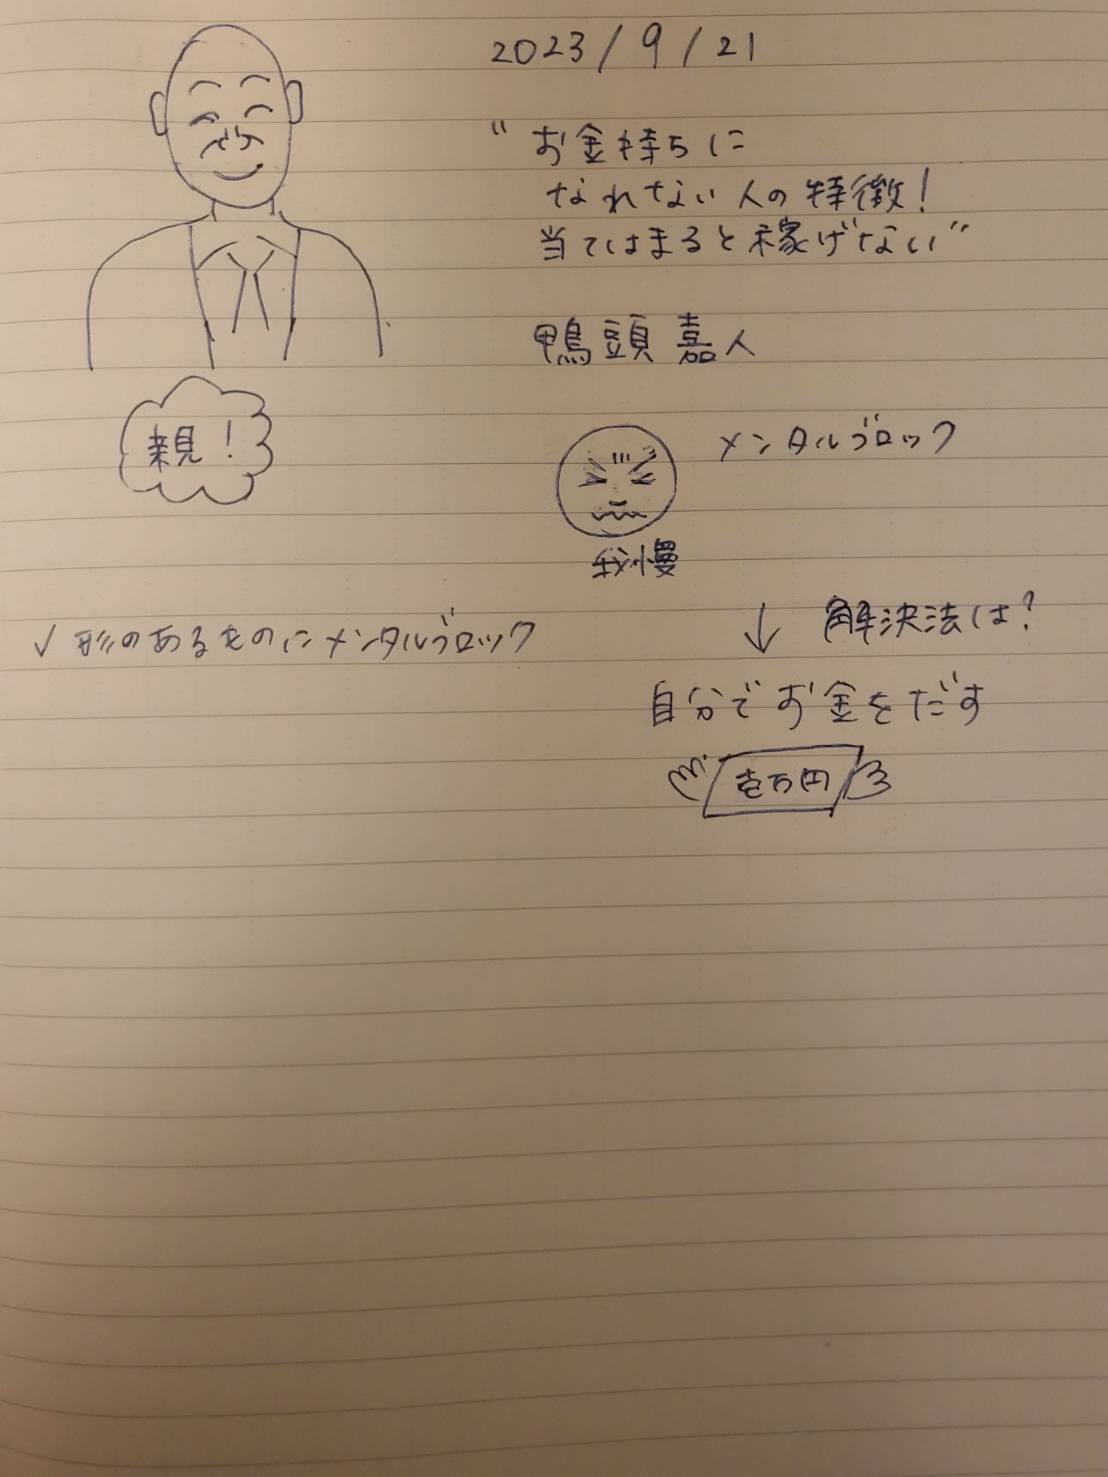 2023/9/21
"お金持ちに
なれない人の特徴!
当てはまると稼げない"
鴨頭 嘉人
親!
メンタルブロック
我慢
↓ 解決法は?
✓ 形のあるものにメンタルブロック
自分でお金をだす
壱万円